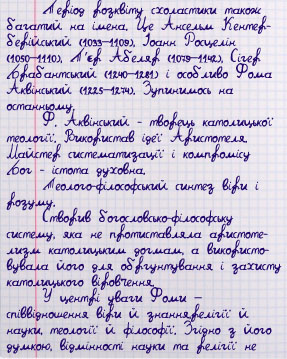 Період розквіту схоластики також
багатий на імена. Це Ансельм Кентер-
берійський (1033-1109), Іоанн Росцелін
(1050-1110), П'єр Абеляр (1079-1142), Сігер
Брабантський (1240-1281) і особливо Фома
Аквінський (1225-1274). Зупинимось на
останньому.
Ф. Аквінський - творець католицької
теології. Використав ідеї Аристотеля.
Майстер систематизації і компромісу
Бог - істота духовна.
Теолого-філософський синтез віри і
розуму.
Створив богословсько-філософську
систему, яка не протиставляла аристоте-
лізм католицьким догмам, а використо-
вувала його для обґрунтування і захисту
католицького віровчення.
У центрі уваги Фоми –
співвідношення віри й знання, релігії й
науки, теології й філософії. Згідно з його
думкою, відмінності науки та релігії не